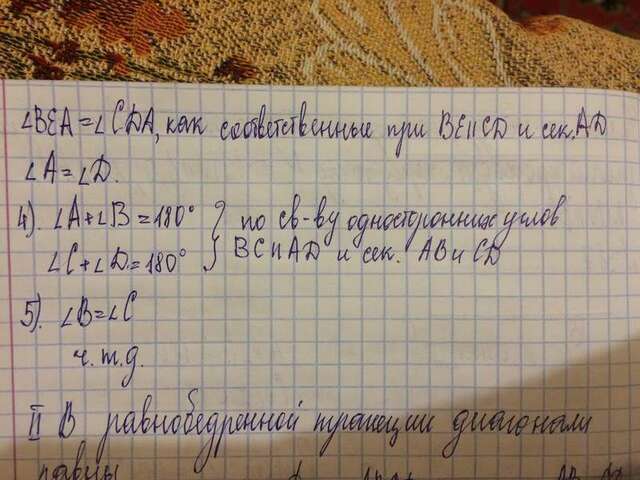 ∠BEA=∠CDA, как соответственные при BE||CD и сек. AD
∠A=∠D.
4). ∠A+∠B=180° } по св-ву односторонних углов
∠C+∠D=180° } BC||AD и сек. AB и CD
5). ∠B=∠C
ч.т.д.
II В равнобедренной трапеции диагонали
равны